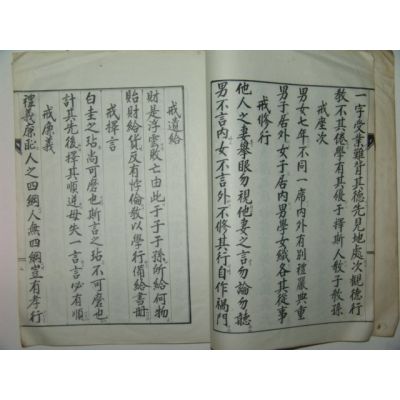 一字受業雖背其德先見地處次觀德行
教不其倦學有其優子擇斯人教子教孫
戒座次
男女七年不同一席內外有別禮嚴典重
男子居外女子居內男學女織各其從事
戒修行
他人之妻舉眼勿視他妻之言勿論勿聽
男不言內女不言外不修其行自作禍門
戒遺給
財是浮雲敗亡由此子子孫所給何物
貽財給貨反有悖倫教以學行備給書冊
戒擇言
白圭之玷尚可磨也斯言之玷不可磨也
計其先後擇其順逆毋失一言言必有順
戒廉義
禮義廉恥人之四綱人無四綱豈有孝行